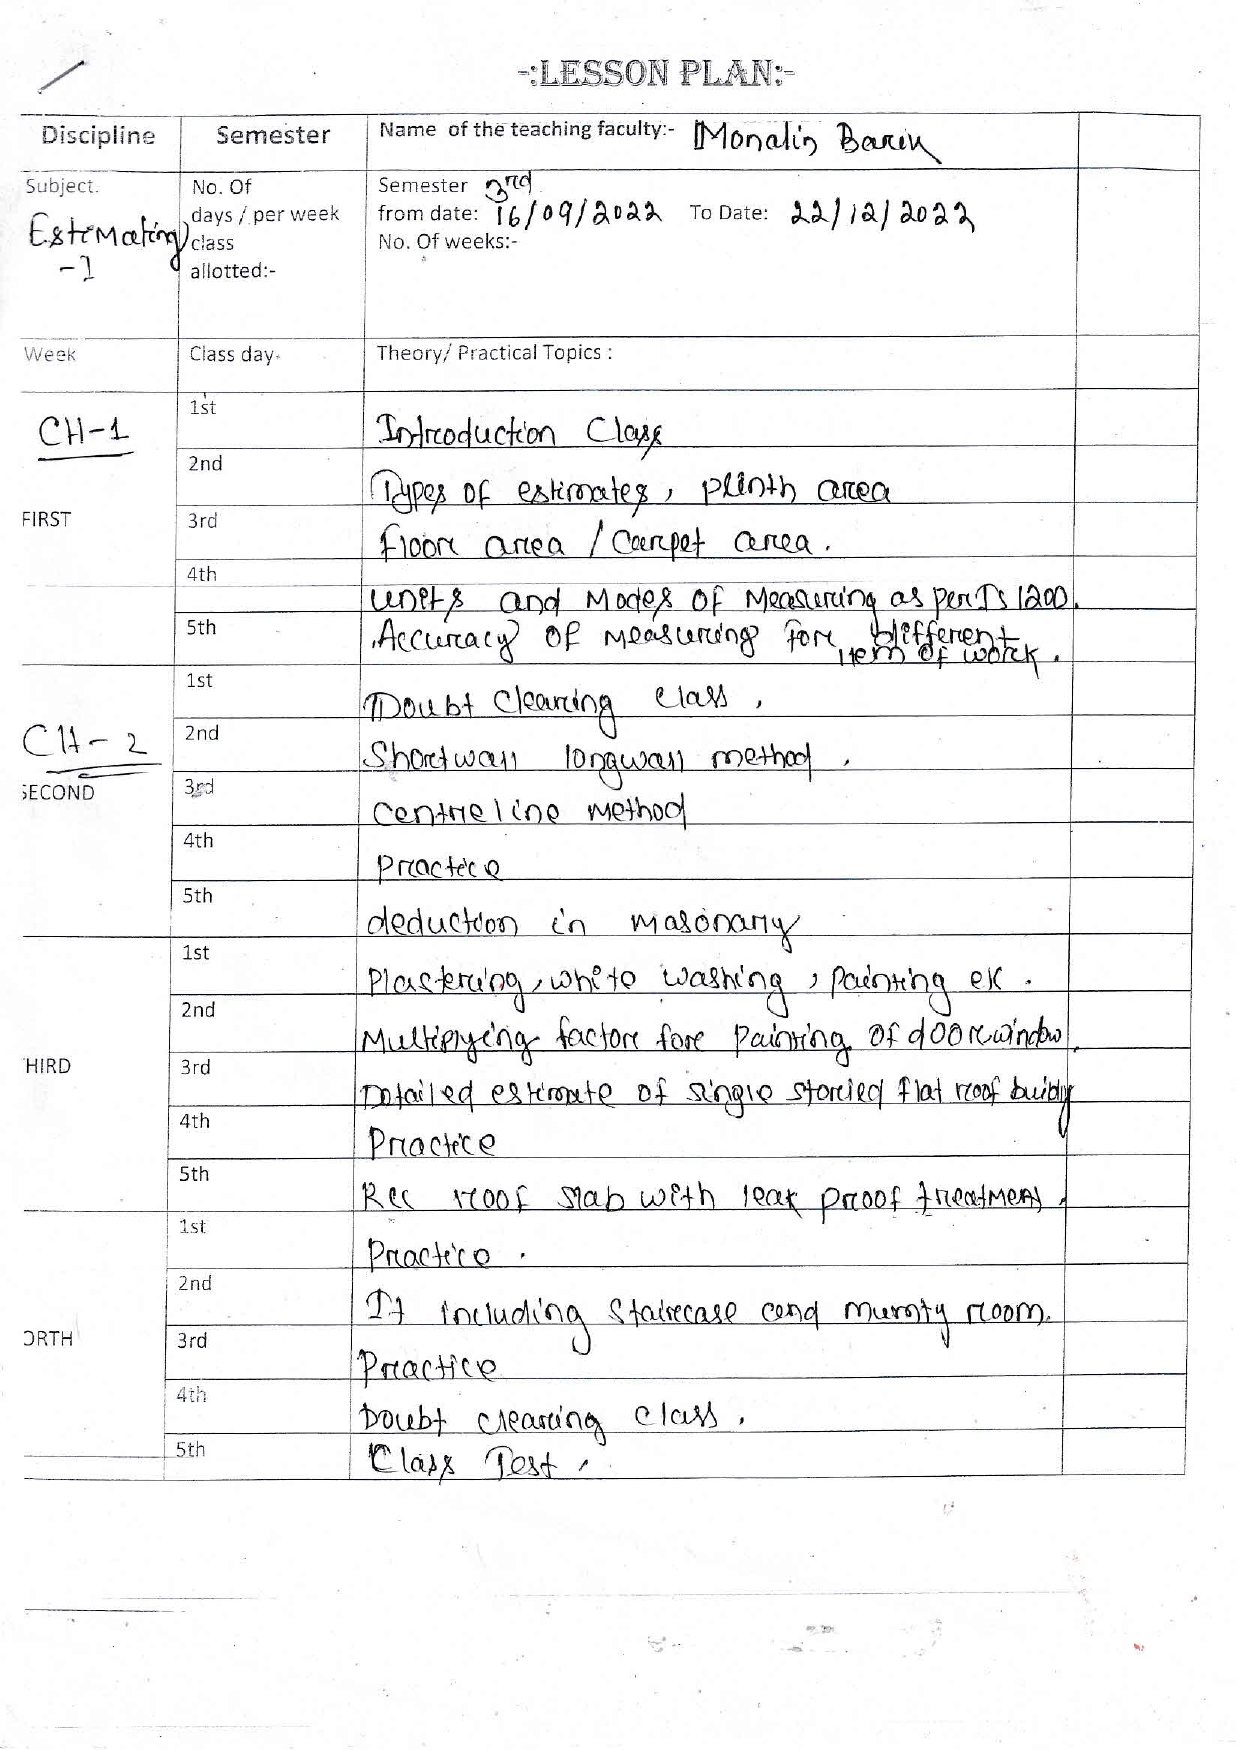 -:LESSON PLAN:-
Discipline
Semester
Name of the teaching faculty:- Monalis Barik
Subject.
Estimating
-1
No. Of
days / per week
class
allotted:-
Semester 3rd
from date: 16/09/2022 To Date: 22/12/2022
No. Of weeks:-
Week
Class day
Theory/ Practical Topics :
CH-1
FIRST
1st
Introduction Class
2nd
Types of estimates, plinth area
3rd
floor area / Carpet area.
4th
Units and Modes of Measuring as per IS 1200.
5th
Accuracy of Measuring for different
item of work.
CH-2
SECOND
1st
Doubt Clearing class.
2nd
Shortwall longwall method.
3rd
Centre line Method
4th
Practice
5th
deduction in masonary
HIRD
1st
Plastering, white washing, painting
2nd
Multiplying factor for painting of door window.
3rd
Detailed estimate of single storied flat roof
4th
Practice
5th
Rcc roof slab with leak proof treatment.
ORTH
1st
Practice.
2nd
It including staircase and mumty room.
3rd
Practice
4th
Doubt clearing class.
5th
Class Test.